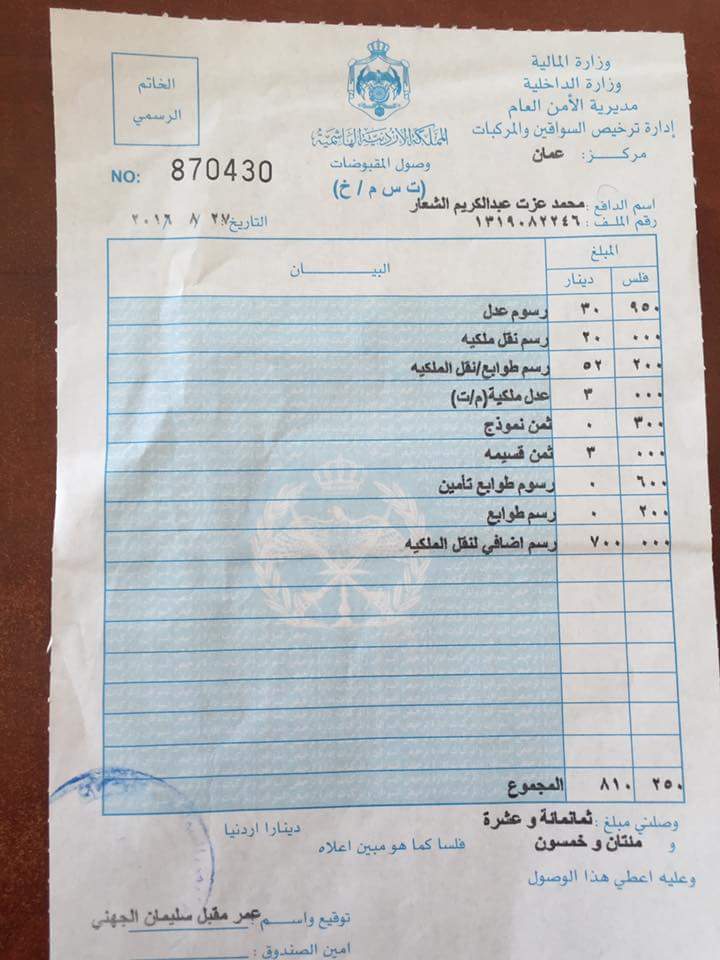 وزارة المالية
وزارة الداخلية
مديرية الأمن العام
إدارة ترخيص السواقين والمركبات
مركز: عمان
المملكة الأردنية الهاشمية
وصول المقبوضات
(ت س م / خ)
الخاتم
الرسمي
NO: 870430
اسم الدافع : محمد عزت عبدالكريم الشعار
رقم الملف : ١٣١٩٠٨٢٢٤٦
التاريخ: ٢٧ / ٨ / ٢٠١٦
المبلغ
فلس دينار البيــــــان
٩٥٠ ٣٠ رسوم عدل
٠٠٠ ٢٠ رسم نقل ملكيه
٢٠٠ ٥٢ رسم طوابع/نقل الملكيه
٠٠٠ ٣ عدل ملكية(م/ت)
٣٠٠ ٠ ثمن نموذج
٠٠٠ ٣ ثمن قسيمه
٦٠٠ ٠ رسوم طوابع تأمين
٢٠٠ ٠ رسم طوابع
٠٠٠ ٧٠٠ رسم اضافي لنقل الملكيه
٢٥٠ ٨١٠ المجموع
وصلني مبلغ : ثمانمائة و عشرة دينارا اردنيا
و مئتان و خمسون فلسا كما هو مبين اعلاه
وعليه اعطي هذا الوصول
توقيع واســم : عمر مقبل سليمان الجهني
امين الصندوق :